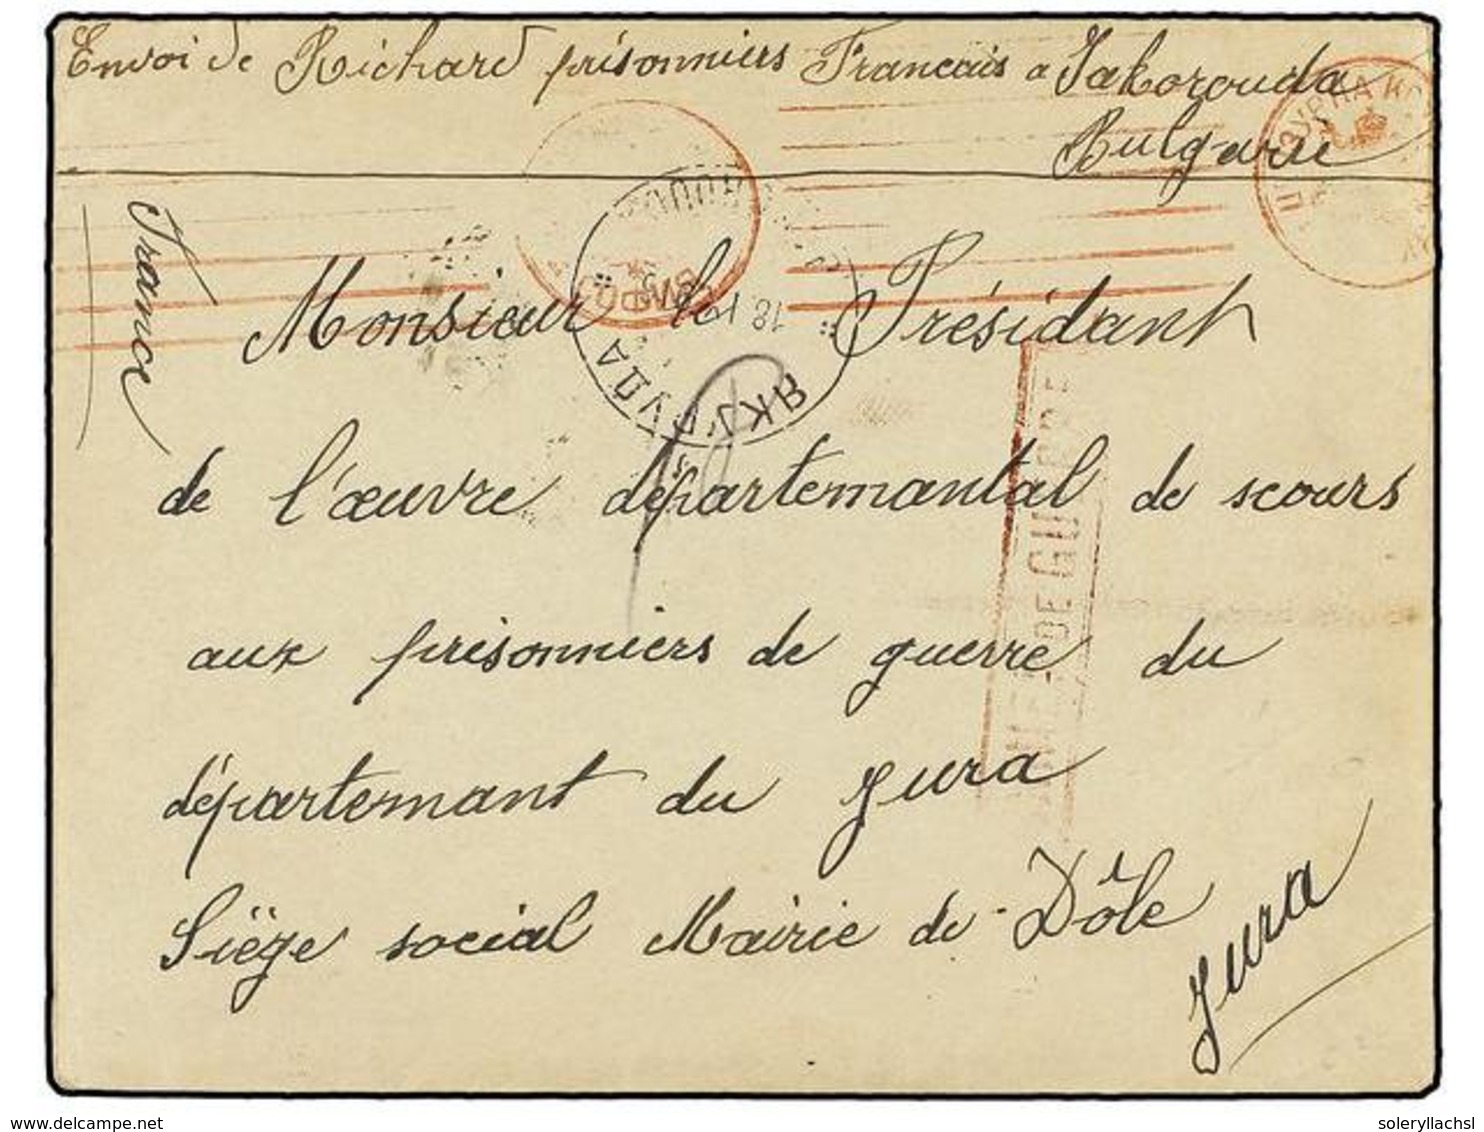 Envoi de Richard prisonniers Francais a Jakorouda
Bulgarie
France
Monsieur le Présidant
de l'œuvre départemantal de scours
aux prisonniers de guerre du
départemant du Jura
Siège social Mairie de Dôle
Jura
DE GUERRE
18
delcampe.net
soleryllachsl